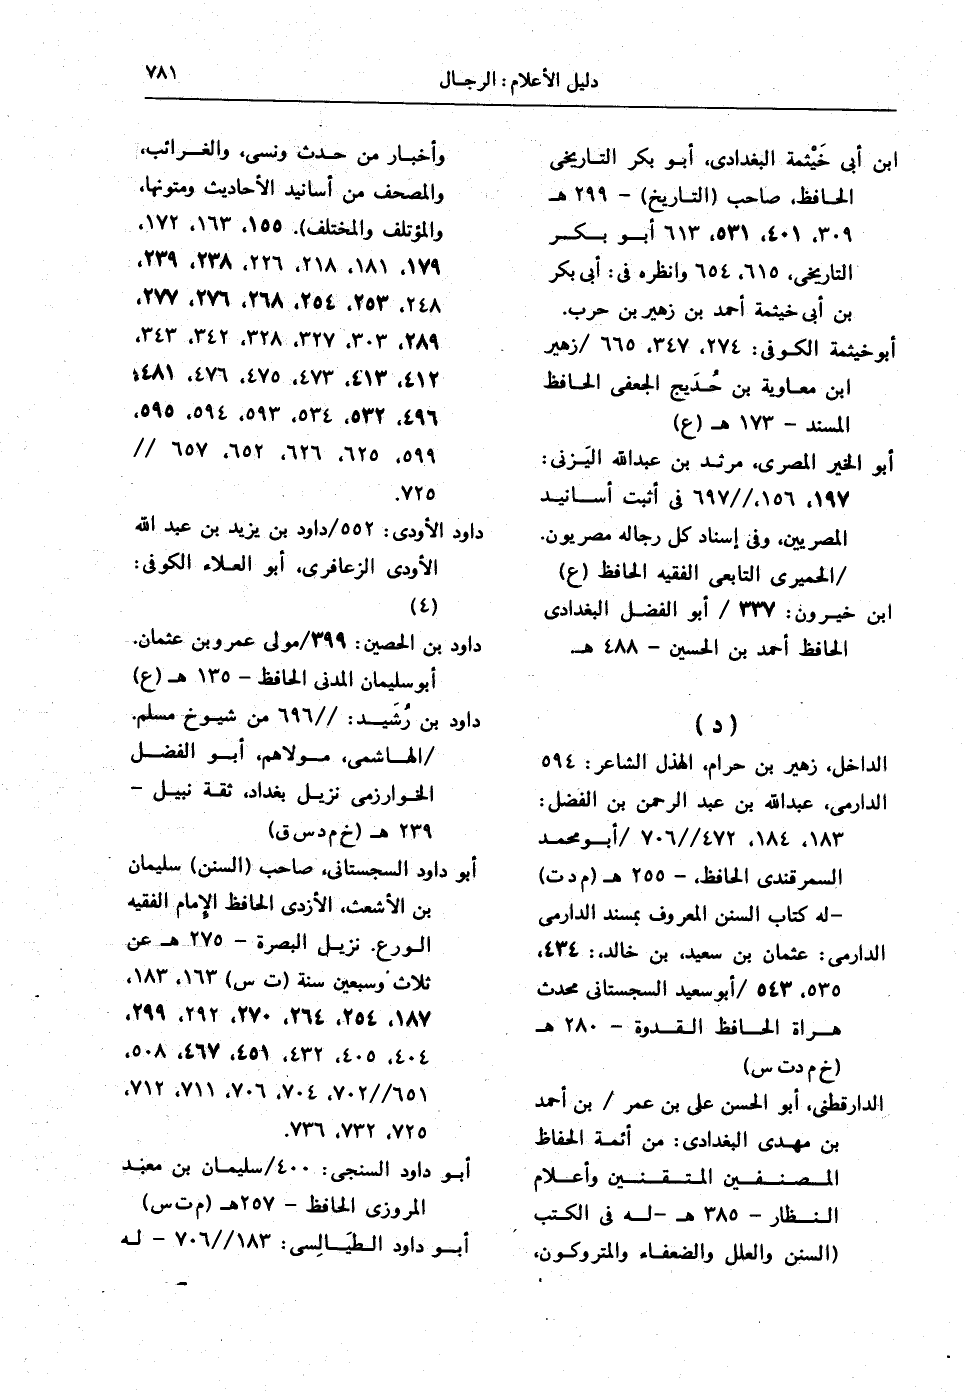 دليل الأعلام: الرجال
٧٨١
ابن أبى خَيْثمة البغدادى، أبو بكر التاريخى
الحافظ، صاحب (التاريخ) - ٢٩٩ هـ
٣٠٩، ٤٠١، ٥٣١، ٦١٣ أبو بكر
التاريخى، ٦١٥، ٦٥٤ وانظره فى: أبى بكر
بن أبى خيثمة أحمد بن زهير بن حرب.
أبوخيثمة الكوفى: ٢٧٤، ٣٤٧، ٦٦٥ /زهير
ابن معاوية بن حُدَيج الجعفى الحافظ
المسند - ١٧٣ هـ (ع)
أبو الخير المصرى، مرثد بن عبدالله اليَزنى:
١٩٧، ١٥٦،//٦٩٧ فى أثبت أسانيد
المصريين، وفى إسناد كل رجاله مصريون.
/الحميرى التابعى الفقيه الحافظ (ع)
ابن خيرون: ٣٣٧ / أبو الفضل البغدادى
الحافظ أحمد بن الحسين - ٤٨٨ هـ.
(د)
الداخل، زهير بن حرام، الهذل الشاعر: ٥٩٤
الدارمى، عبدالله بن عبد الرحمن بن الفضل:
١٨٣، ١٨٤، ٤٧٢//٧٠٦ /أبومحمد
السمرقندى الحافظ، - ٢٥٥ هـ (م د ت)
-له كتاب السنن المعروف بمسند الدارمى
الدارمى: عثمان بن سعيد، بن خالد،: ٤٣٤،
٥٣٥، ٥٤٣ /أبوسعيد السجستانى محدث
هراة الحافظ القدوة - ٢٨٠ هـ
(خ م دت س)
الدارقطنى، أبو الحسن على بن عمر / بن أحمد
بن مهدى البغدادى: من أئمة الحفاظ
المصنفين المتقنين وأعلام
النظار - ٣٨٥ هـ -له فى الكتب
(السنن والعلل والضعفاء والمتروكون،
وأخبار من حدث ونسى، والغرائب،
والمصحف من أسانيد الأحاديث ومتونها،
والمؤتلف والمختلف). ١٥٥، ١٦٣، ١٧٢،
١٧٩، ١٨١، ٢١٨، ٢٢٦، ٢٣٨، ٢٣٩،
٢٤٨، ٢٥٣، ٢٥٤، ٢٦٨، ٢٧٦، ٢٧٧،
٢٨٩، ٣٠٣، ٣٢٧، ٣٢٨، ٣٤٢، ٣٤٣،
٤١٢، ٤١٣، ٤٧٣، ٤٧٥، ٤٧٦، ٤٨١،
٤٩٦، ٥٣٢، ٥٣٤، ٥٩٣، ٥٩٤، ٥٩٥،
٥٩٩، ٦٢٥، ٦٢٦، ٦٥٢، ٦٥٧ //
٧٢٥.
داود الأودى: ٥٥٢/داود بن يزيد بن عبد الله
الأودى الزعافرى، أبو العلاء الكوفى:
(٤)
داود بن الحصين: ٣٩٩/مولى عمروبن عثمان.
أبوسليمان المدنى الحافظ - ١٣٥ هـ (ع)
داود بن رُشَيد: //٦٩٦ من شيوخ مسلم.
/الهاشمى، مولاهم، أبو الفضل
الخوارزمى نزيل بغداد، ثقة نبيل -
٢٣٩ هـ (خ م د س ق)
أبو داود السجستانى، صاحب (السنن) سليمان
بن الأشعث، الأزدى الحافظ الإمام الفقيه
الورع. نزيل البصرة - ٢٧٥ هـ عن
ثلاث وسبعين سنة (ت س) ١٦٣، ١٨٣،
١٨٧، ٢٥٤، ٢٦٤، ٢٧٠، ٢٩٢، ٢٩٩،
٤٠٤، ٤٠٥، ٤٣٢، ٤٥١، ٤٦٧، ٥٠٨،
٦٥١//٧٠٢، ٧٠٤، ٧٠٦، ٧١١، ٧١٢،
٧٢٥، ٧٣٢، ٧٣٦.
أبو داود السنجى: ٤٠٠/سليمان بن معبَد
المروزى الحافظ - ٢٥٧هـ (م ت س)
أبو داود الطيَالِسى: ١٨٣//٧٠٦ - له